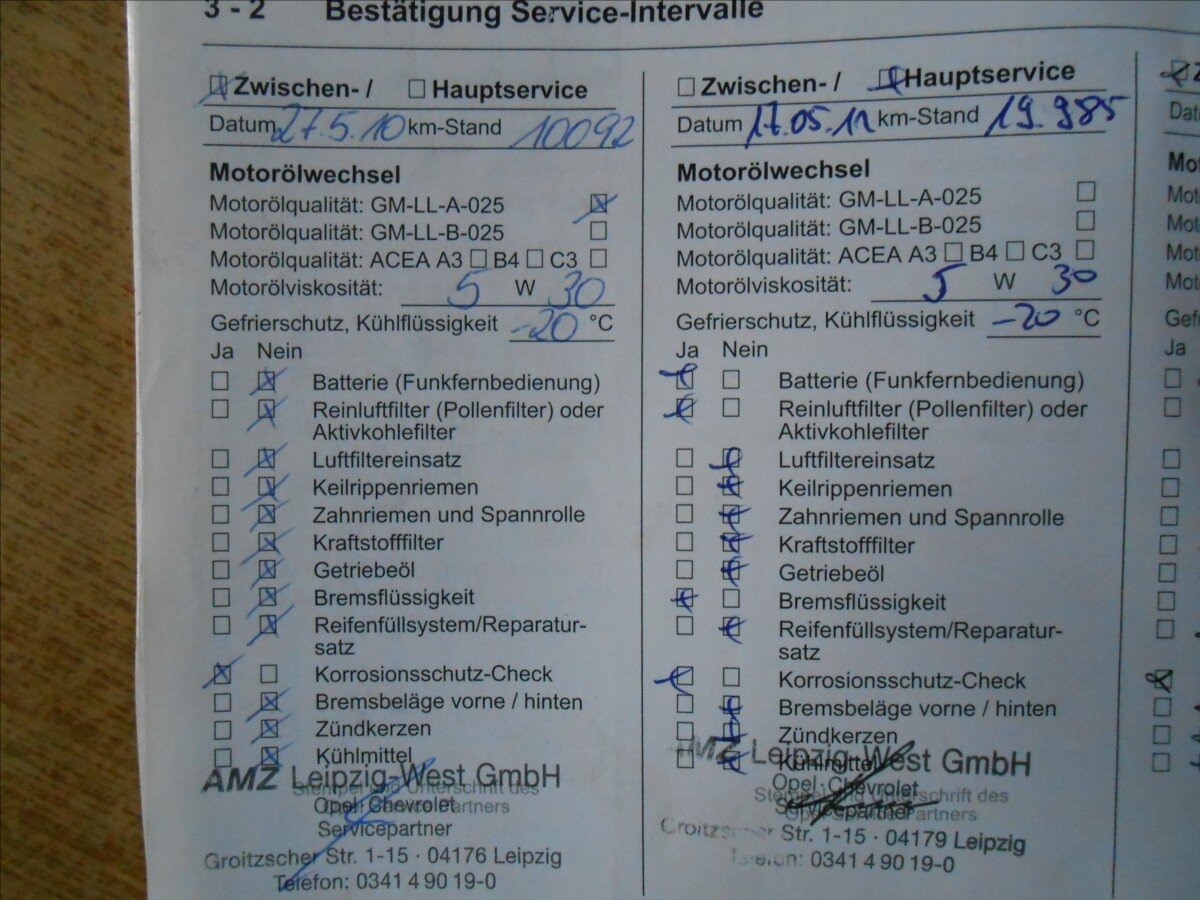 3 - 2 Bestätigung Service-Intervalle
Zwischen- / Hauptservice
Datum 27.5.10 km-Stand 10092
Motorölwechsel
Motorölqualität: GM-LL-A-025
Motorölqualität: GM-LL-B-025
Motorölqualität: ACEA A3 B4 C3
Motorölviskosität: 5 W 30
Gefrierschutz, Kühlflüssigkeit -20 °C
Ja Nein
Batterie (Funkfernbedienung)
Reinluftfilter (Pollenfilter) oder
Aktivkohlefilter
Luftfiltereinsatz
Keilrippenriemen
Zahnriemen und Spannrolle
Kraftstofffilter
Getriebeöl
Bremsflüssigkeit
Reifenfüllsystem/Reparatur-
satz
Korrosionsschutz-Check
Bremsbeläge vorne / hinten
Zündkerzen
Kühlmittel
AMZ Leipzig-West GmbH
Stempel und Unterschrift des
Opel Chevrolet
Servicepartner
Groitzscher Str. 1-15 · 04176 Leipzig
Telefon: 0341 4 90 19-0
Zwischen- / Hauptservice
Datum 17.05.11 km-Stand 19.985
Motorölwechsel
Motorölqualität: GM-LL-A-025
Motorölqualität: GM-LL-B-025
Motorölqualität: ACEA A3 B4 C3
Motorölviskosität: 5 W 30
Gefrierschutz, Kühlflüssigkeit -20 °C
Ja Nein
Batterie (Funkfernbedienung)
Reinluftfilter (Pollenfilter) oder
Aktivkohlefilter
Luftfiltereinsatz
Keilrippenriemen
Zahnriemen und Spannrolle
Kraftstofffilter
Getriebeöl
Bremsflüssigkeit
Reifenfüllsystem/Reparatur-
satz
Korrosionsschutz-Check
Bremsbeläge vorne / hinten
Zündkerzen
Kühlmittel
AMZ Leipzig-West GmbH
Stempel und Unterschrift des
Opel Chevrolet
Servicepartner
Groitzscher Str. 1-15 · 04179 Leipzig
Telefon: 0341 4 90 19-0
Ja